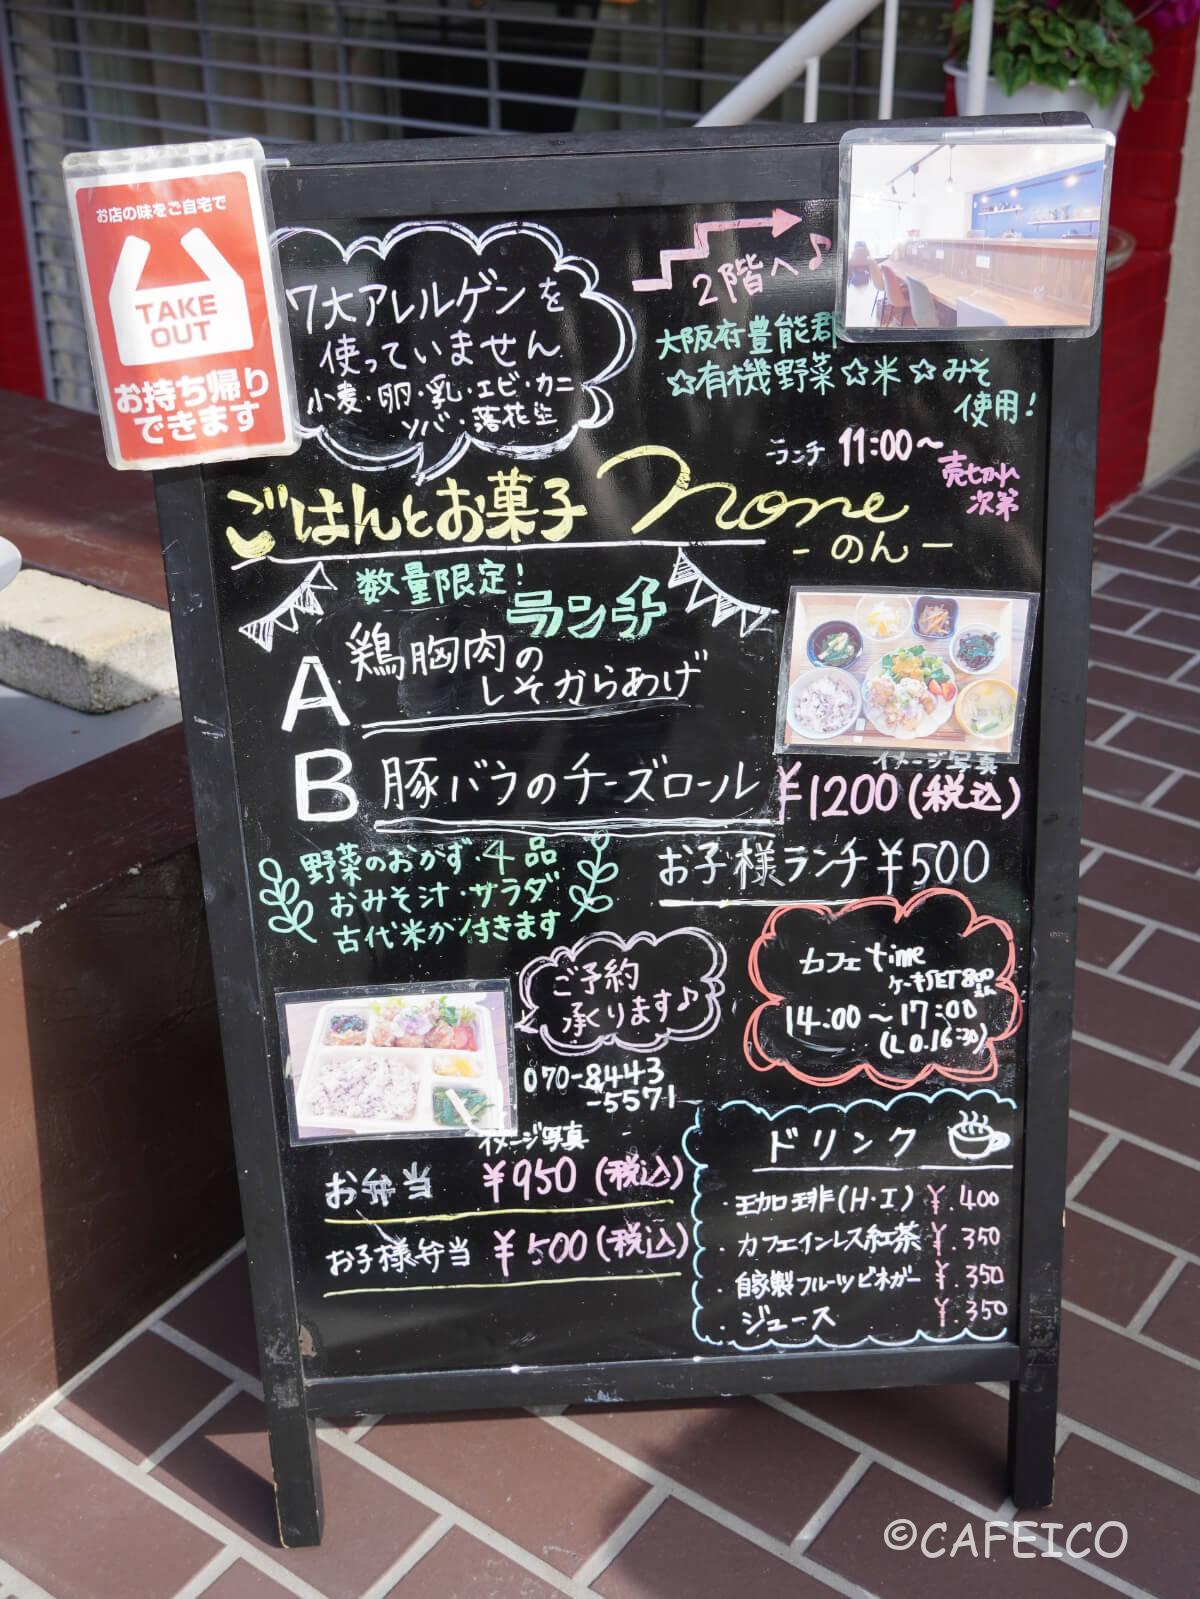 お店の味をご自宅で
TAKE
OUT
お持ち帰り
できます
7大アレルゲンを
使っていません
小麦・卵・乳・エビ・カニ
ソバ・落花生
2階へ♪
大阪府豊能郡
☆有機野菜☆米☆みそ
使用!
ランチ 11:00〜
売切れ
次第
ごはんとお菓子 none
-のん-
数量限定!
ランチ
A 鶏胸肉の
しそからあげ
B 豚バラのチーズロール
イメージ写真
¥1200(税込)
野菜のおかず・4品
おみそ汁・サラダ
古代米が付きます
お子様ランチ ¥500
カフェtime
ケーキSET800
14:00〜17:00
(L.O.16:30)
ご予約
承ります♪
070-8443
-5571
イメージ写真
お弁当 ¥950(税込)
お子様弁当 ¥500(税込)
ドリンク
・珈琲(H・I) ¥400
・カフェインレス紅茶 ¥.350
・自家製フルーツビネガー ¥.350
・ジュース ¥.350
©CAFEICO